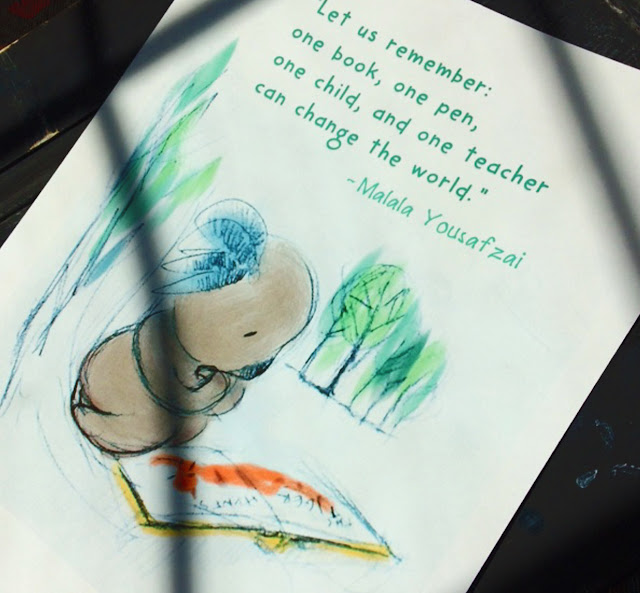 "Let us remember:
one book, one pen,
one child, and one teacher
can change the world."
~Malala Yousafzai